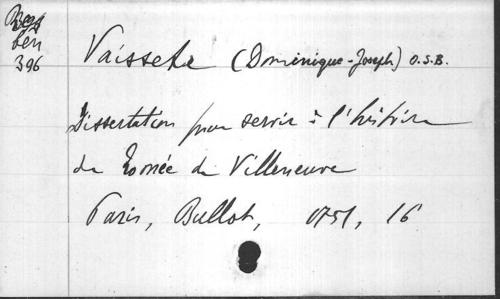 ben
396
Vaissete (Dominique-Joseph) O.S.B.
Dissertation pour servir à l'histoire
de Tornée de Villeneuve
Paris, Bullot, 1751, 16